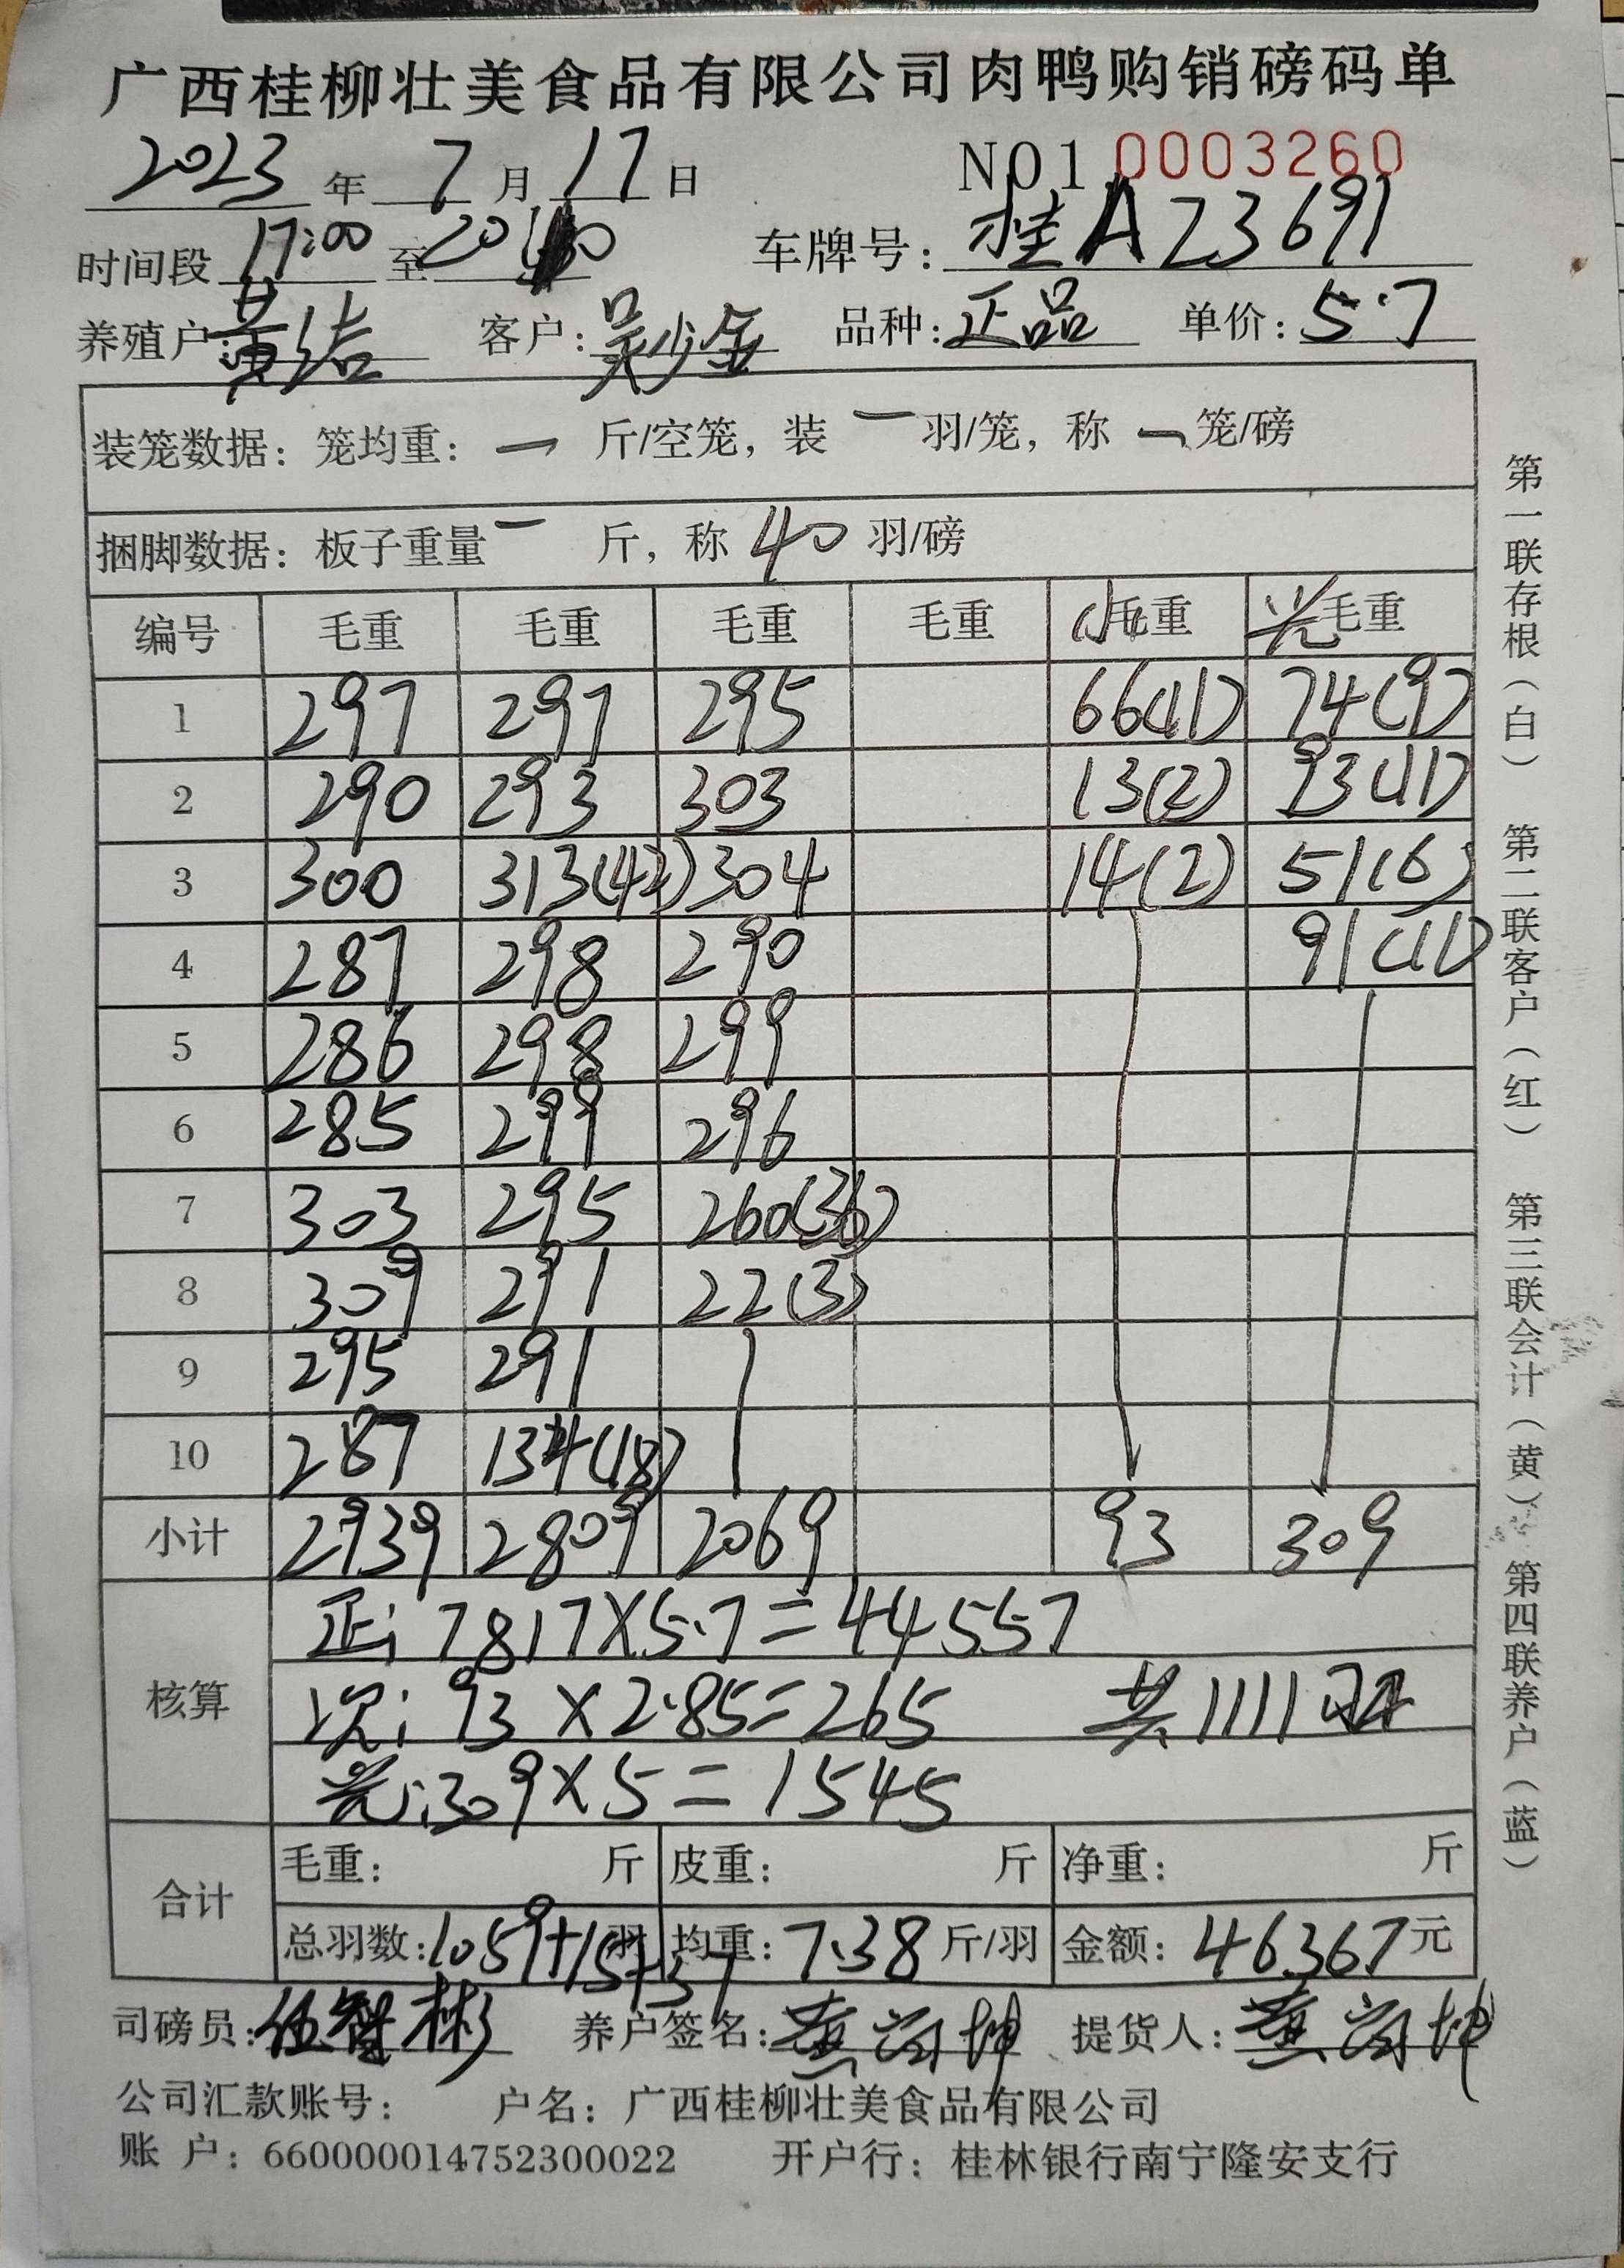 广西桂柳壮美食品有限公司肉鸭购销磅码单
2023年7月17日 NO1 0003260
时间段 17:00 至 20 车牌号：桂A23691
养殖户 黄结 客户：吴少金 品种：正品 单价：5.7
装笼数据：笼均重：一 斤/空笼，装 一 羽/笼，称 一 笼/磅
捆脚数据：板子重量 一 斤，称 40 羽/磅
编号 毛重 毛重 毛重 毛重 小毛重 光毛重
1 297 297 295 66(11) 74(9)
2 290 293 303 13(2) 93(11)
3 300 313(42) 304 14(2) 51(6)
4 287 298 290 91(11)
5 286 298 299
6 285 299 296
7 303 295 260(36)
8 309 291 22(3)
9 295 291
10 287 134(18)
小计 2939 2809 2069 93 309
核算 正：7817×5.7=44557
次：93×2.85=265 共1111羽
光：309×5=1545
合计 毛重： 斤 皮重： 斤 净重： 斤
总羽数：1059+15+37羽 均重：7.38斤/羽 金额：46367元
司磅员：伍智彬 养户签名：黄 坤 提货人：黄 坤
公司汇款账号： 户名：广西桂柳壮美食品有限公司
账 户：660000014752300022 开户行：桂林银行南宁隆安支行
第一联存根（白） 第二联客户（红） 第三联会计（黄） 第四联养户（蓝）